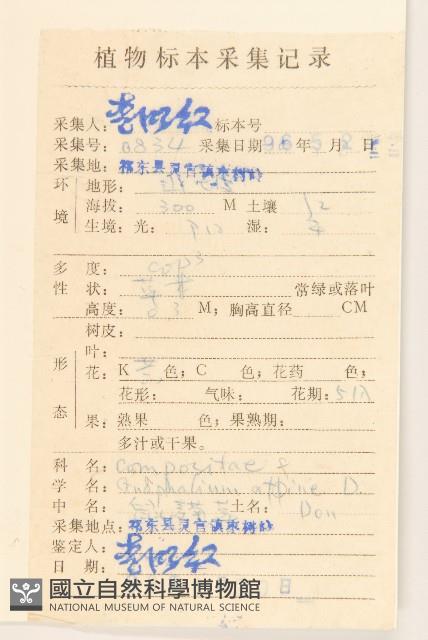 植物标本采集记录
采集人: 标本号
采集号: 0834 采集日期 96年5月8日
采集地: 祁东县灵官镇枣树岭
环境 地形:
海拔: 300 M 土壤
生境: 光: 湿:
多 度: cop3
性 状: 草本 常绿或落叶
高度: 0.3 M; 胸高直径 CM
树皮:
形态 叶:
花: K 色; C 色; 花药 色;
花形: 气味: 花期: 5月
果: 熟果 色; 果熟期:
多汁或干果。
科 名: Compositae
学 名: Gnaphalium affine D.
Don
中 名: 土名:
采集地点: 祁东县灵官镇枣树岭
鉴定人:
日 期: 日
國立自然科學博物館
NATIONAL MUSEUM OF NATURAL SCIENCE